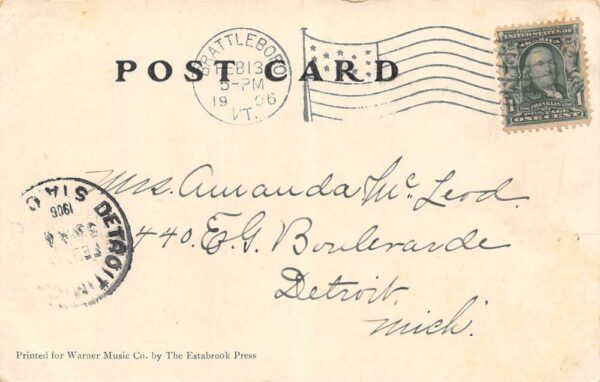 BRATTLEBORO
FEB 13
5-PM
19 06
VT.
POST CARD
UNITED STATES OF AMERICA
FRANKLIN
1
ONE CENT
Mrs. Amanda McLeod
440. E. G. Boulevarde
Detroit.
Mich.
DETROIT
STA
1906
Printed for Warner Music Co. by The Estabrook Press